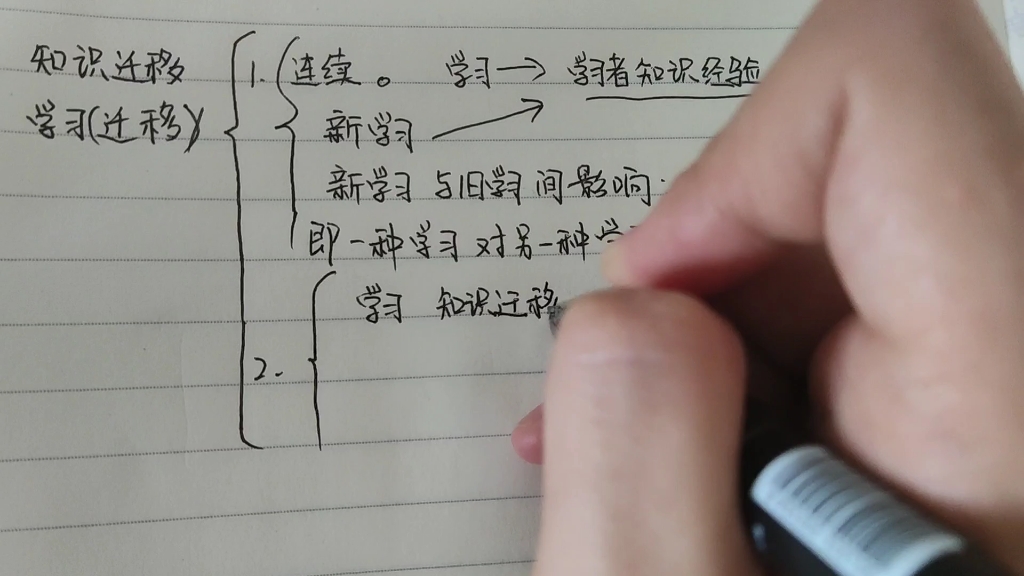 知识迁移
学习(迁移)
1. 连续。 学习→学习者知识经验
新学习
新学习 与旧学习间影响.
即一种学习对另一种学
2. 学习 知识迁移